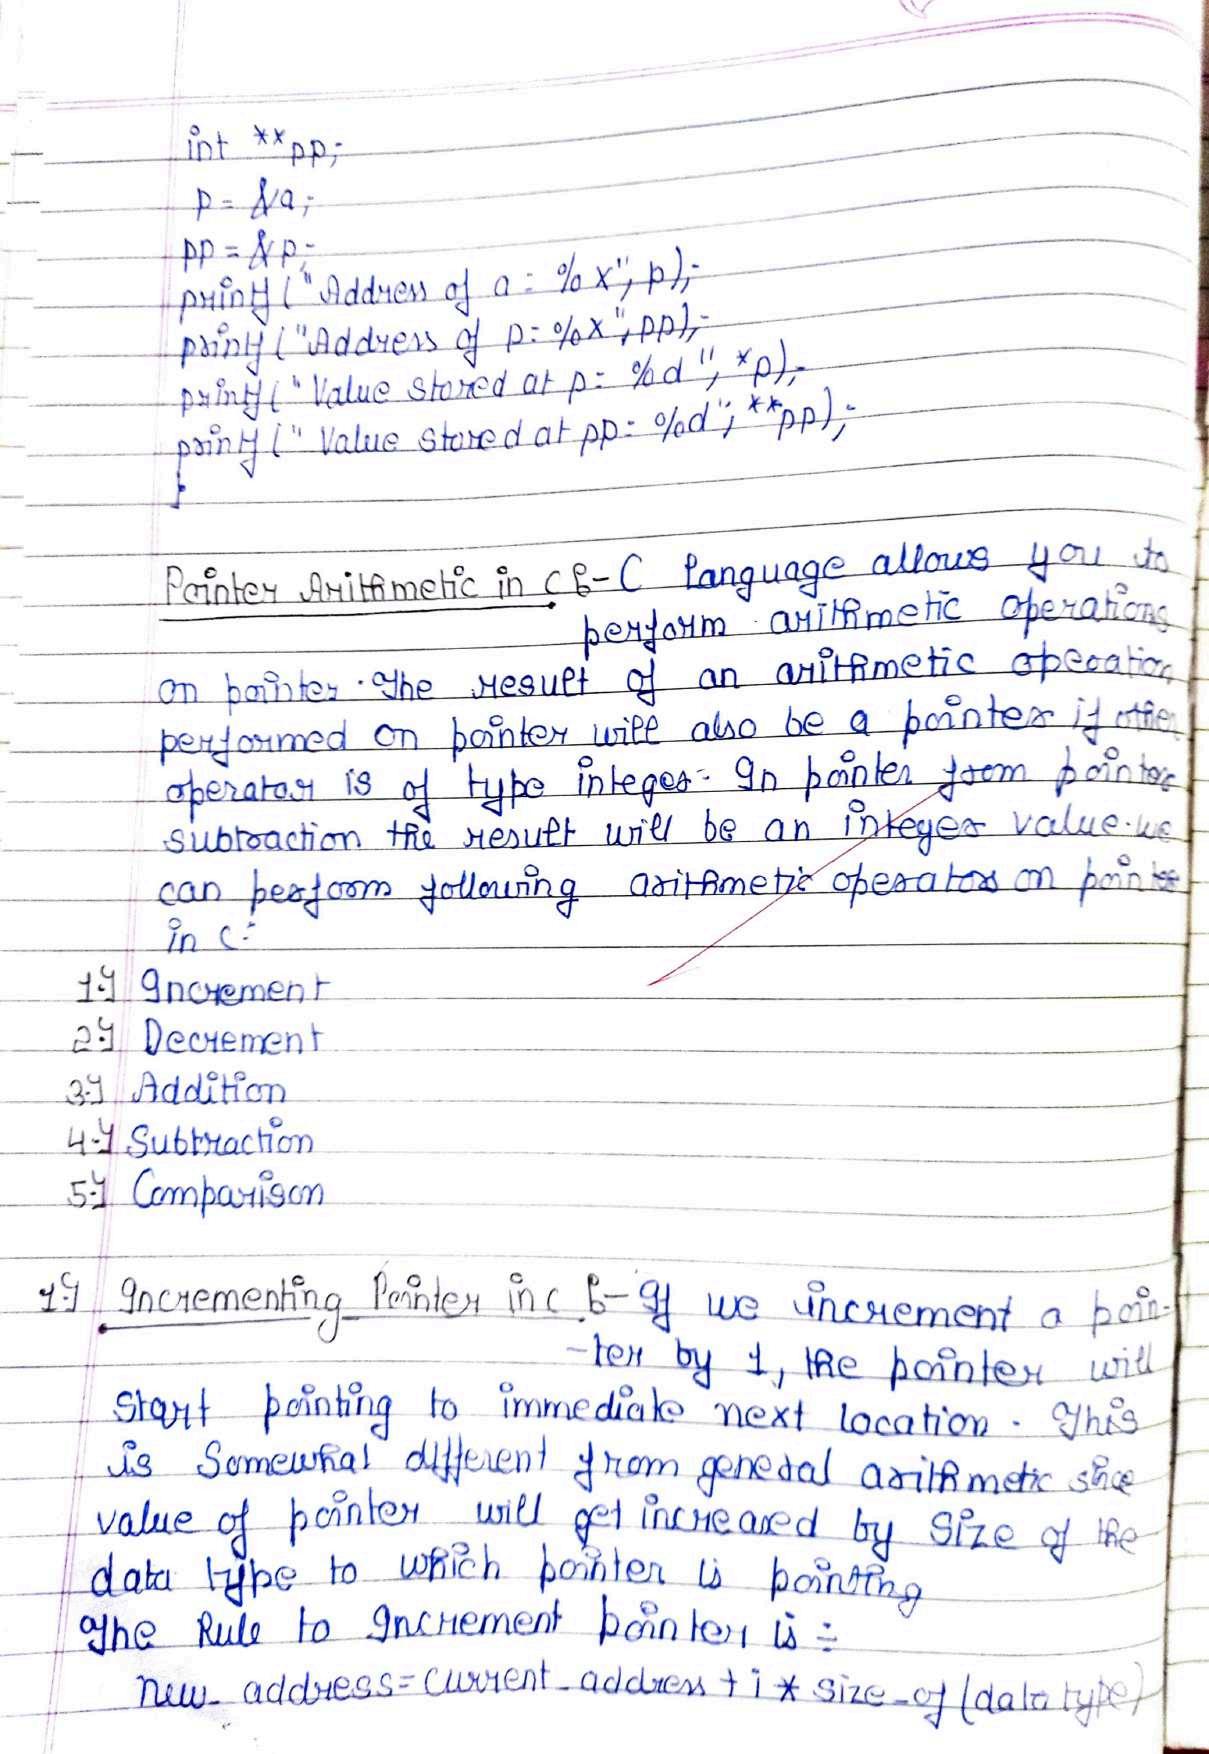 int **pp;
p = &a;
pp = &p;
printf ("Address of a = %x", p);
printf ("Address of p = %x", pp);
printf (" Value stored at p = %d ", *p);
printf (" Value stored at pp = %d", **pp);
}
Pointer Arithmetic in C :- C language allows you to
perform arithmetic operations
on pointer. The result of an arithmetic operation
performed on pointer will also be a pointer if other
operator is of type integer. In pointer from pointer
subtraction the result will be an integer value. we
can perform following arithmetic operators on pointer
in C:-
1.) Increment
2.) Decrement
3.) Addition
4.) Subtraction
5.) Comparison
1.) Incrementing Pointer in C :- If we increment a poin-
-ter by 1, the pointer will
start pointing to immediate next location. This
is Somewhat different from general arithmetic since
value of pointer will get increased by Size of the
data type to which pointer is pointing
The Rule to Increment pointer is :-
new_address = current_address + i * size_of (data type)